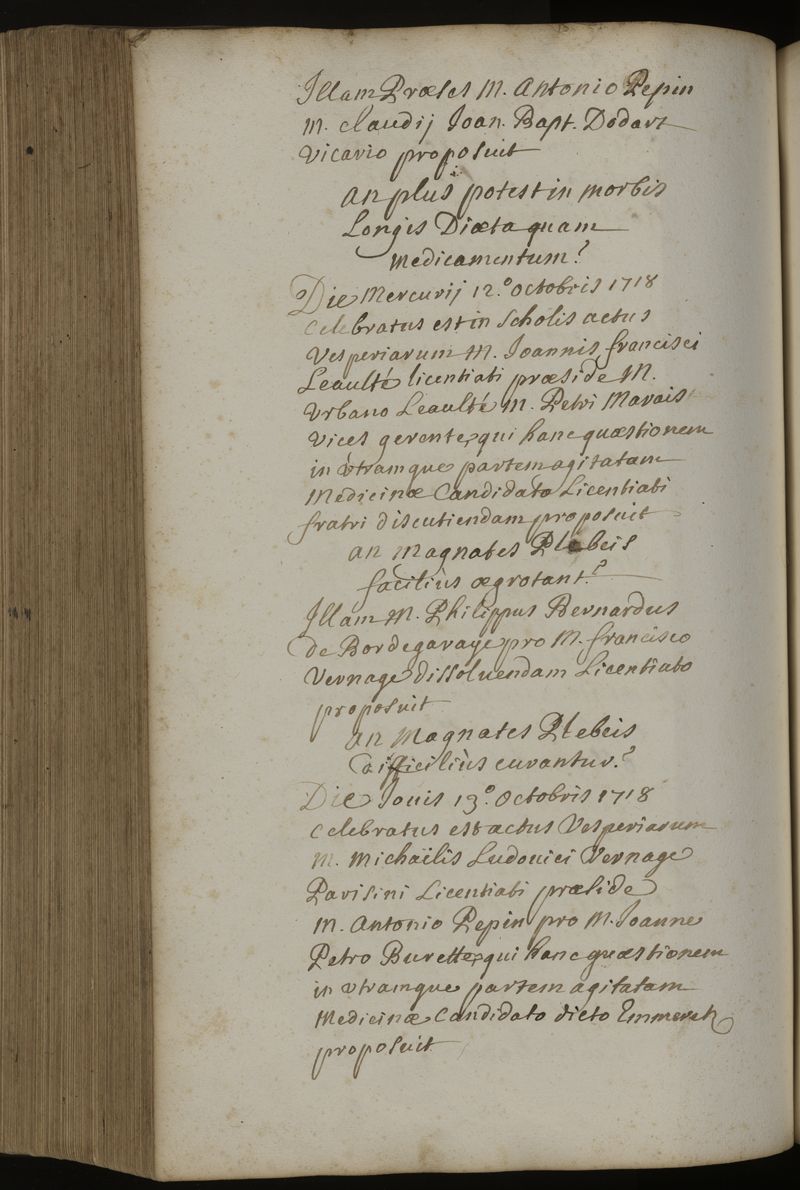 Illam Præses M. Antonio Pepin
M. Claudij Joan. Bapt. Dodart
vicario proposuit
an plus potest in morbis
Longis Diæta quam
medicamentum?
Die Mercurij 12.° octobris 1718
celebratus est in scholis actus
vesperiarum M. Joannis francisci
Leaulté licentiati præside M.
Urbano Leaulté M. Petri Marais
vices gerente, qui hanc quæstionem
in utramque partem agitatam
Medicinæ Candidato Licentiati
fratri discutiendam proposuit
an magnates Plebeis
faciliùs ægrotant?
Illam M. Philippus Bernardus
de Bordegaraye pro M. francisco
Vernage dissoluendam Licentiato
proposuit
an Magnates Plebeis
difficiliùs curantur?
Die Jouis 13.° octobris 1718
celebratus est actus Vesperiarum
M. Michaëlis Ludouici Vernage
Parisini Licentiati præside
M. Antonio Pepin pro M. Joanne
Petro Burette, qui hanc quæstionem
in utramque partem agitatam
Medicinæ Candidato dicto Emmerez
proposuit